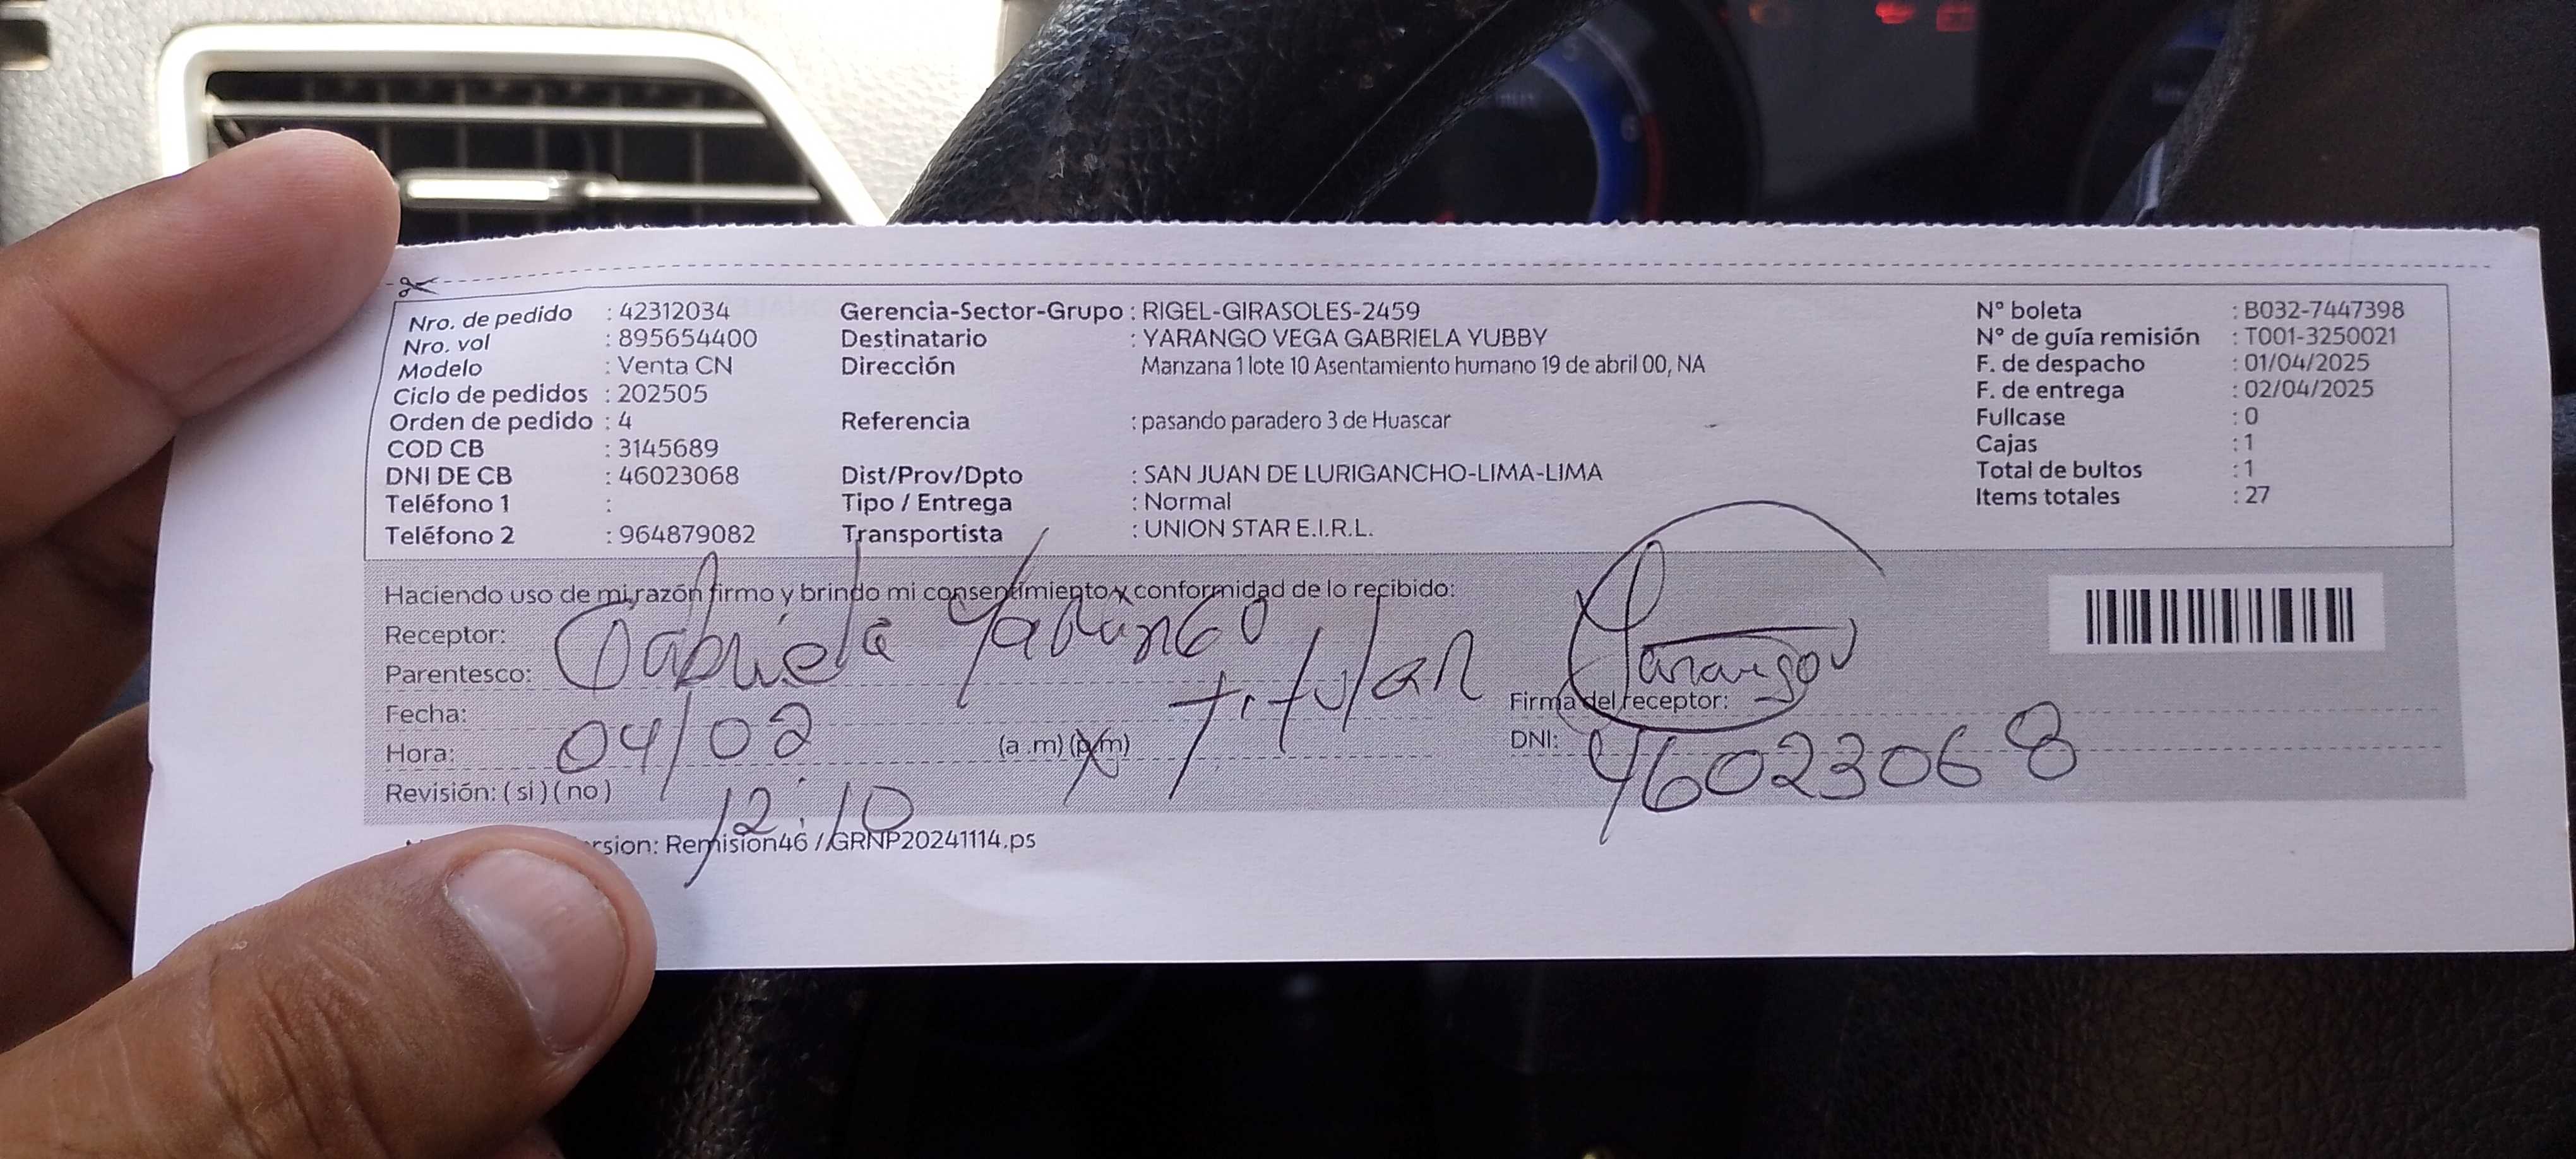 Nro. de pedido : 42312034 Gerencia-Sector-Grupo : RIGEL-GIRASOLES-2459 N° boleta : B032-7447398
Nro. vol : 895654400 Destinatario : YARANGO VEGA GABRIELA YUBBY N° de guía remisión : T001-3250021
Modelo : Venta CN Dirección Manzana 1 lote 10 Asentamiento humano 19 de abril 00, NA F. de despacho : 01/04/2025
Ciclo de pedidos : 202505 F. de entrega : 02/04/2025
Orden de pedido : 4 Referencia : pasando paradero 3 de Huascar Fullcase : 0
COD CB : 3145689 Cajas : 1
DNI DE CB : 46023068 Dist/Prov/Dpto : SAN JUAN DE LURIGANCHO-LIMA-LIMA Total de bultos : 1
Teléfono 1 : Tipo / Entrega : Normal Items totales : 27
Teléfono 2 : 964879082 Transportista : UNION STAR E.I.R.L.
Haciendo uso de mi razón firmo y brindo mi consentimiento y conformidad de lo recibido:
Receptor: Gabriela Yarango
Parentesco: Titular Yarango
Firma del receptor:
Fecha: 04/02
Hora: (a .m) (p.m) DNI: 46023068
Revisión: ( si ) ( no ) 12:10
rsion: Remision46 / GRNP20241114.ps